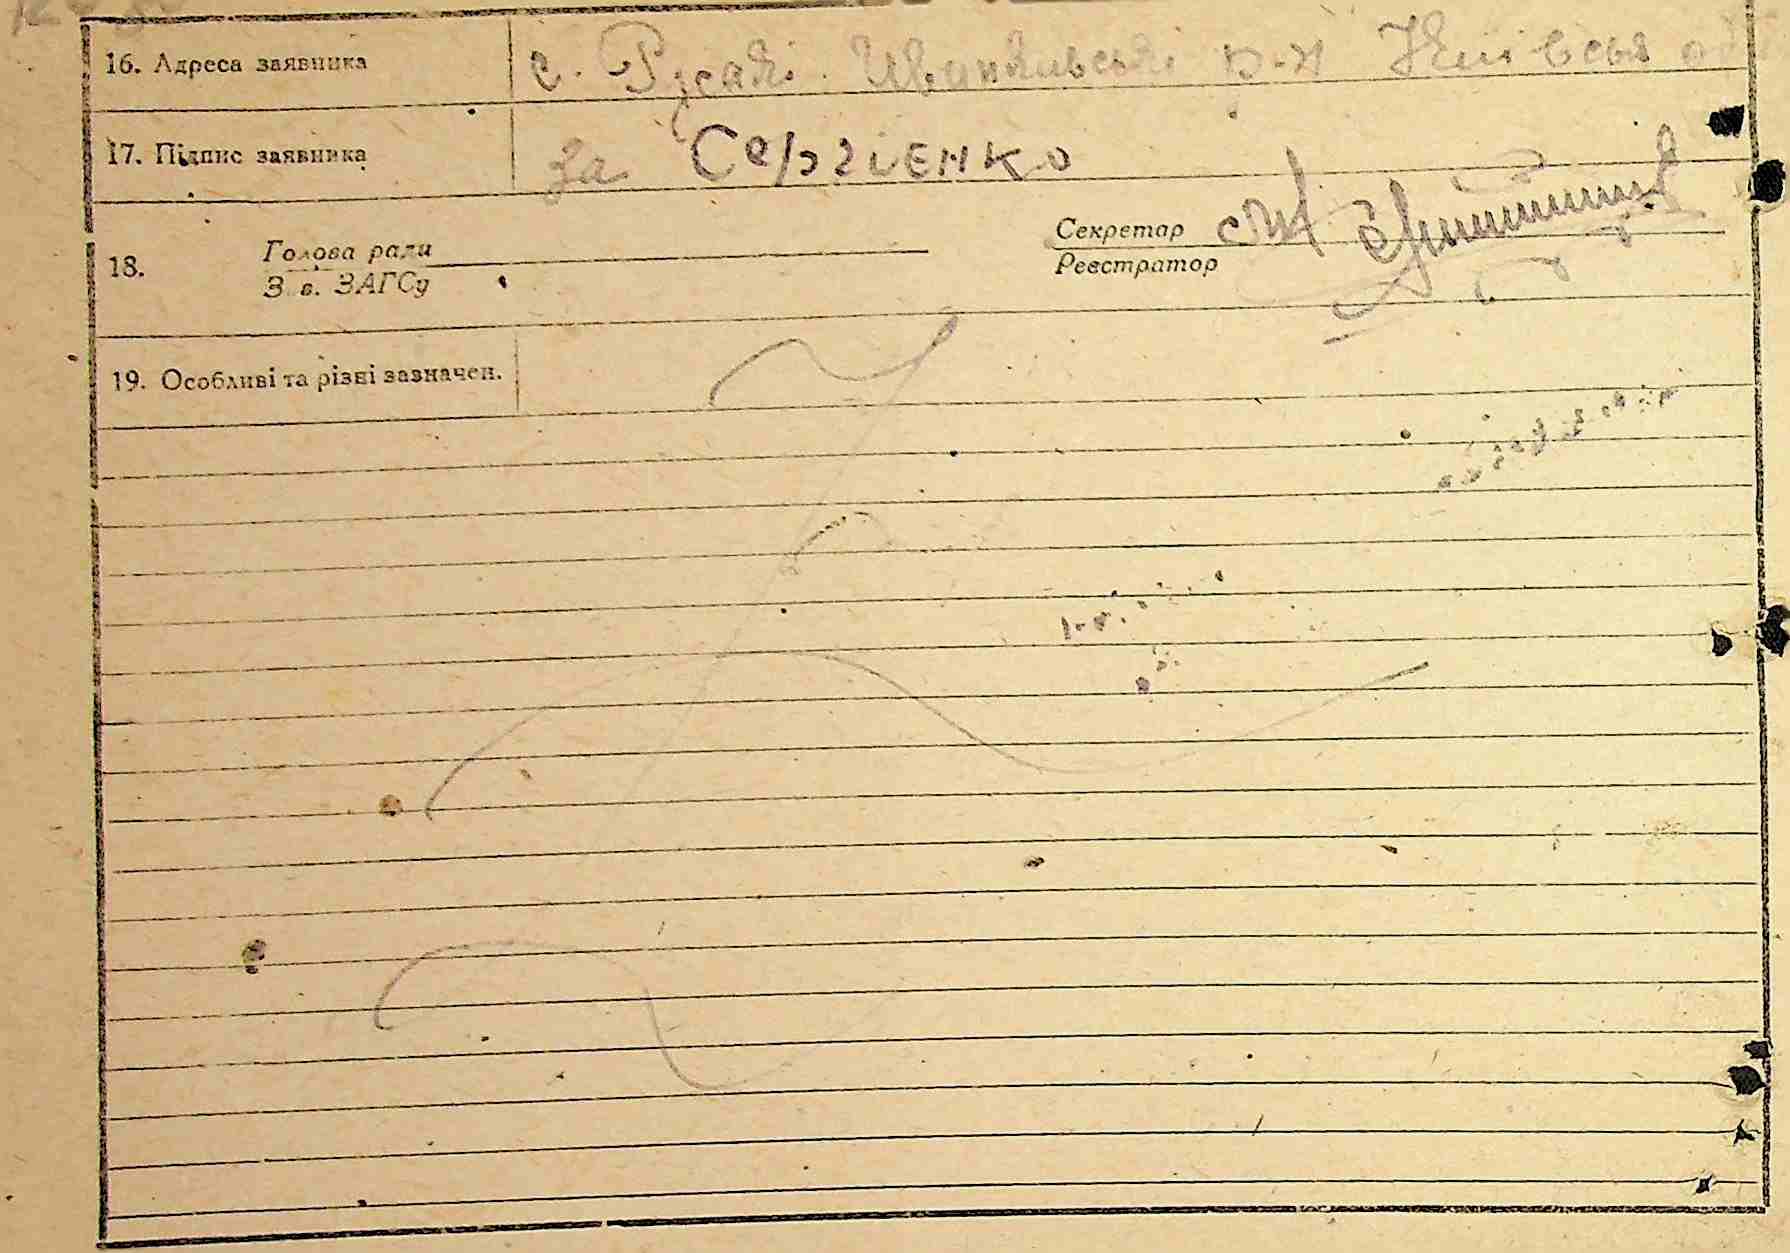 16. Адреса заявника с. Русакі Іванківські р-н Київська об
17. Підпис заявника за Сергіенко
Голова ради Секретар
18.
З в. ЗАГСу Реєстратор
19. Особливі та різні зазначен.